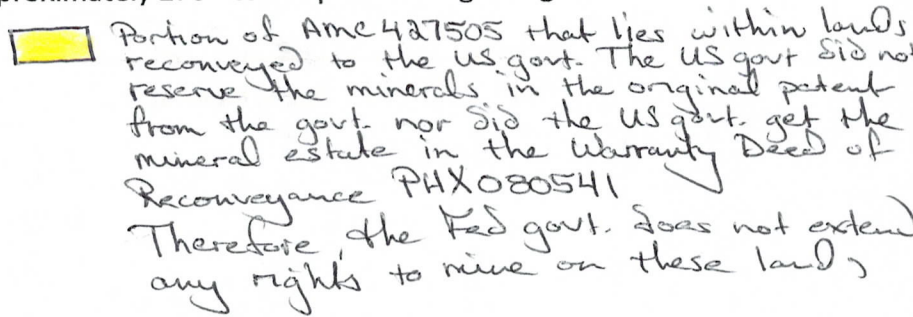 Portion of AMC 427505 that lies within lands
reconveyed to the US govt. The US govt did not
reserve the minerals in the original patent
from the govt. nor did the US govt. get the
mineral estate in the Warranty Deed of
Reconveyance PHX080541
Therefore, the Fed govt. does not extend
any rights to mine on these lands